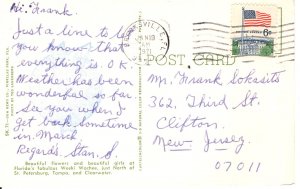 Hi. Frank
Just a line to let
you know that
everything is O.K.
Weather has been
wonderful so far
See you when I
get back sometime
in March
Regards. Stan. S
Beautiful flowers and beautiful girls at
Florida's fabulous Weeki Wachee, just North of
St. Petersburg, Tampa, and Clearwater.
PM
1971
6c
POST CARD
Mr. Frank Sokasits
362, Third St.
Clifton.
New Jersey
07011